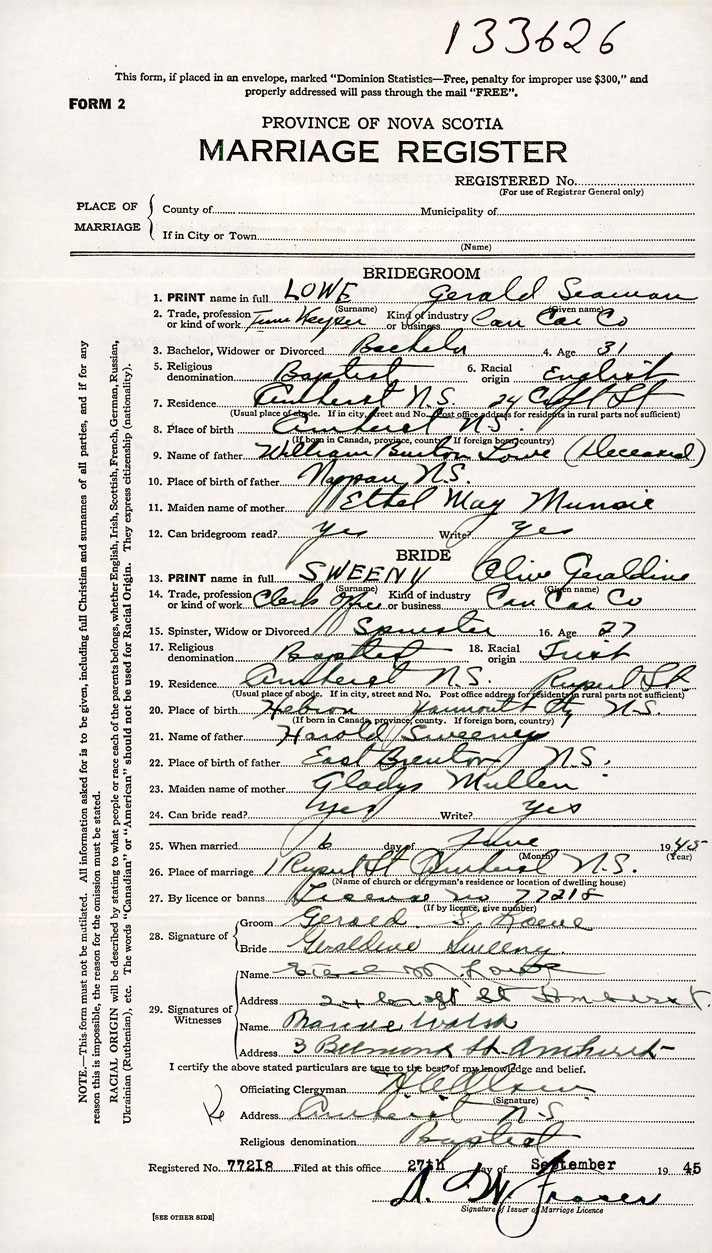 133626
This form, if placed in an envelope, marked "Dominion Statistics—Free, penalty for improper use $300," and
properly addressed will pass through the mail "FREE".
FORM 2
PROVINCE OF NOVA SCOTIA
MARRIAGE REGISTER
REGISTERED No.
(For use of Registrar General only)
PLACE OF MARRIAGE
County of Municipality of
If in City or Town
(Name)
BRIDEGROOM
1. PRINT name in full LOWE Gerald Seaman
(Surname) (Given name)
2. Trade, profession or kind of work Time Keeper Kind of industry or business Can Car Co
3. Bachelor, Widower or Divorced Bachelor 4. Age 31
5. Religious denomination Baptist 6. Racial origin English
7. Residence Amherst N.S. 24 Croft St
(Usual place of abode. If in city, street and No. Post office address for residents in rural parts not sufficient)
8. Place of birth Amherst N.S.
(If born in Canada, province, county. If foreign born, country)
9. Name of father William Burton Lowe (Deceased)
10. Place of birth of father Nappan N.S.
11. Maiden name of mother Ethel May Munsie
12. Can bridegroom read? yes Write? yes
BRIDE
13. PRINT name in full SWEENY Olive Geraldine
(Surname) (Given name)
14. Trade, profession or kind of work Clerk Office Kind of industry or business Can Car Co
15. Spinster, Widow or Divorced Spinster 16. Age 27
17. Religious denomination Baptist 18. Racial origin Irish
19. Residence Amherst N.S. Rupert St.
(Usual place of abode. If in city, street and No. Post office address for residents in rural parts not sufficient)
20. Place of birth Hebron Yarmouth Cty N.S.
(If born in Canada, province, county. If foreign born, country)
21. Name of father Harold Sweeney
22. Place of birth of father East Brenton N.S.
23. Maiden name of mother Gladys Mullen
24. Can bride read? yes Write? yes
25. When married 6 day of June 1945
(Month) (Year)
26. Place of marriage Rupert St Amherst N.S.
(Name of church or clergyman's residence or location of dwelling house)
27. By licence or banns License no 77218
(If by licence, give number)
28. Signature of
Groom Gerald S. Lowe
Bride Geraldine Sweeny
29. Signatures of Witnesses
Name M. Lowe
Address 24 Croft St Amherst.
Name Walsh
Address 3 Belmont St. Amherst
I certify the above stated particulars are true to the best of my knowledge and belief.
Officiating Clergyman
(Signature)
Address Amherst N.S
Religious denomination Baptist
Registered No. 77218 Filed at this office 27th day of September 1945
Fraser
Signature of Issuer of Marriage Licence
[SEE OTHER SIDE]
NOTE.—This form must not be mutilated. All information asked for is to be given, including full Christian and surnames of all parties, and if for any
reason this is impossible, the reason for the omission must be stated.
RACIAL ORIGIN will be described by stating to what people or race each of the parents belongs, whether English, Irish, Scottish, French, German, Russian,
Ukrainian (Ruthenian), etc. The words "Canadian" or "American" should not be used for Racial Origin. They express citizenship (nationality).